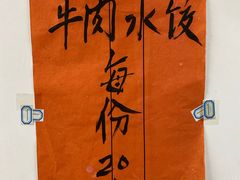 牛肉水饺
每份
20